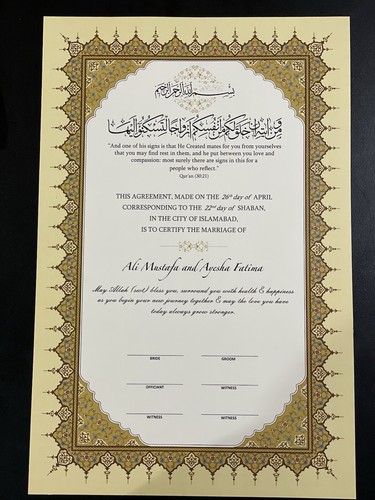 بسم الله الرحمن الرحيم
ومن آياته أن خلق لكم من أنفسكم أزواجا لتسكنوا إليها
"And one of his signs is that He Created mates for you from yourselves
that you may find rest in them, and he put between you love and
compassion: most surely there are signs in this for a
people who reflect."
Qur'an (30:21)
THIS AGREEMENT, MADE ON THE 26th day of APRIL
CORRESPONDING TO THE 22nd day of SHABAN,
IN THE CITY OF ISLAMABAD,
IS TO CERTIFY THE MARRIAGE OF
Ali Mustafa and Ayesha Fatima
May Allah (swt) bless you, surround you with health & happiness
as you begin your new journey together & may the love you have
today always grow stronger.
BRIDE GROOM
OFFICIANT WITNESS
WITNESS WITNESS